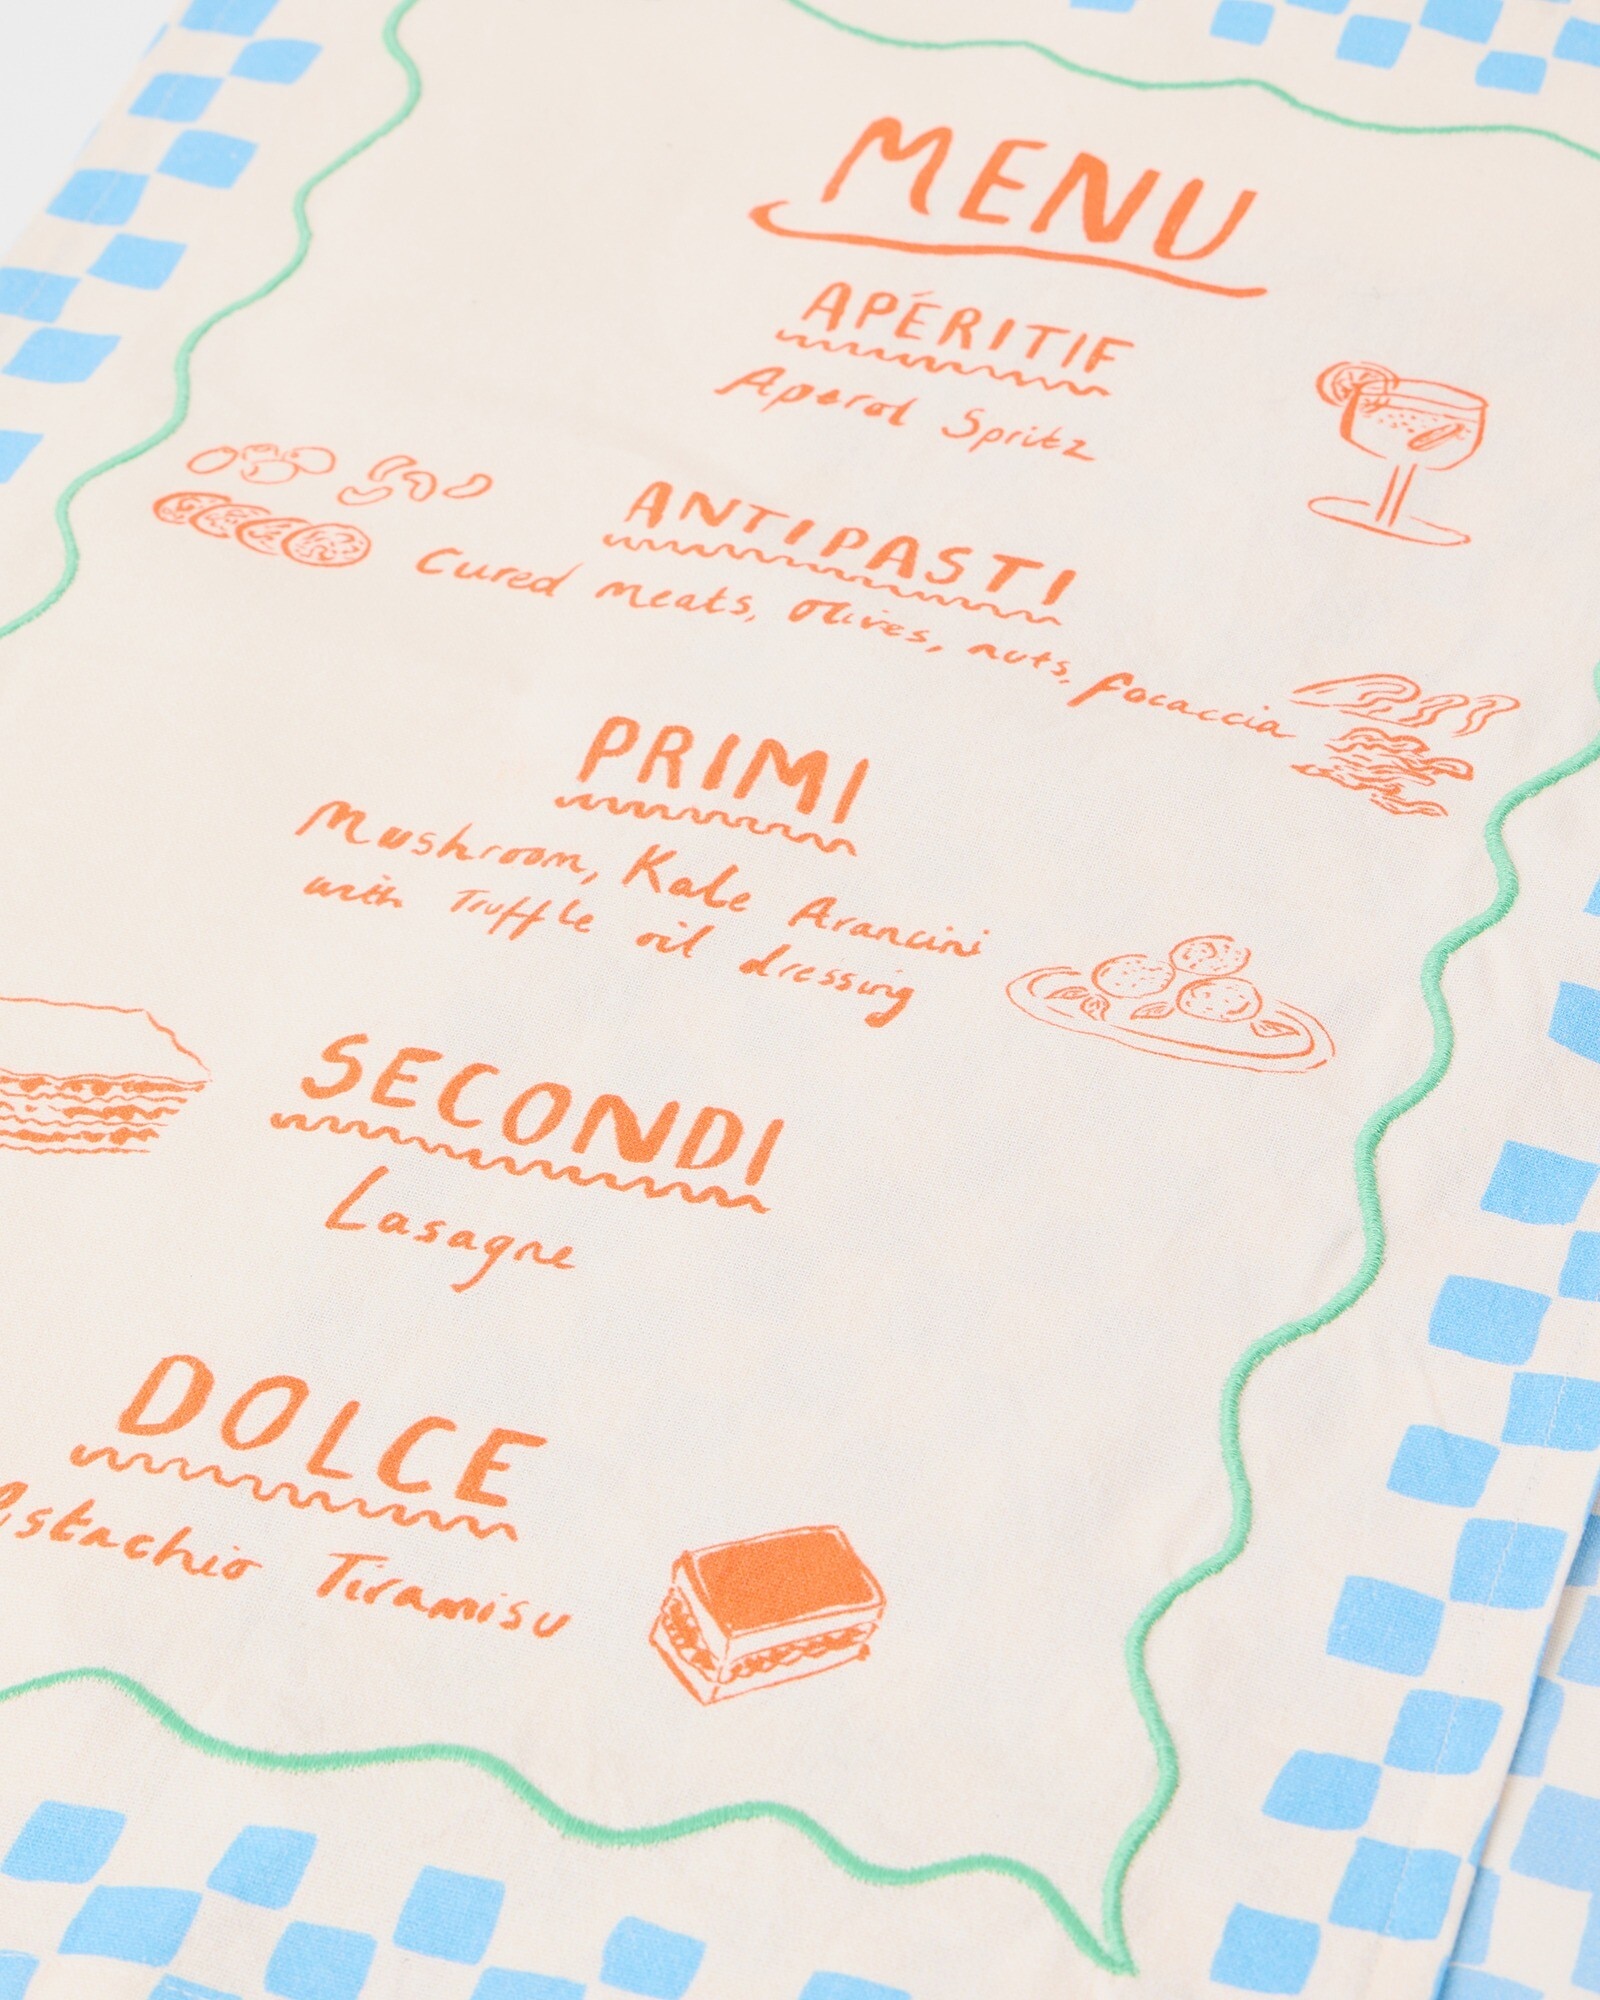 MENU
APÉRITIF
Aperol Spritz
ANTIPASTI
Cured meats, Olives, nuts, focaccia
PRIMI
Mushroom, Kale Arancini
with Truffle oil dressing
SECONDI
Lasagne
DOLCE
Pistachio Tiramisu